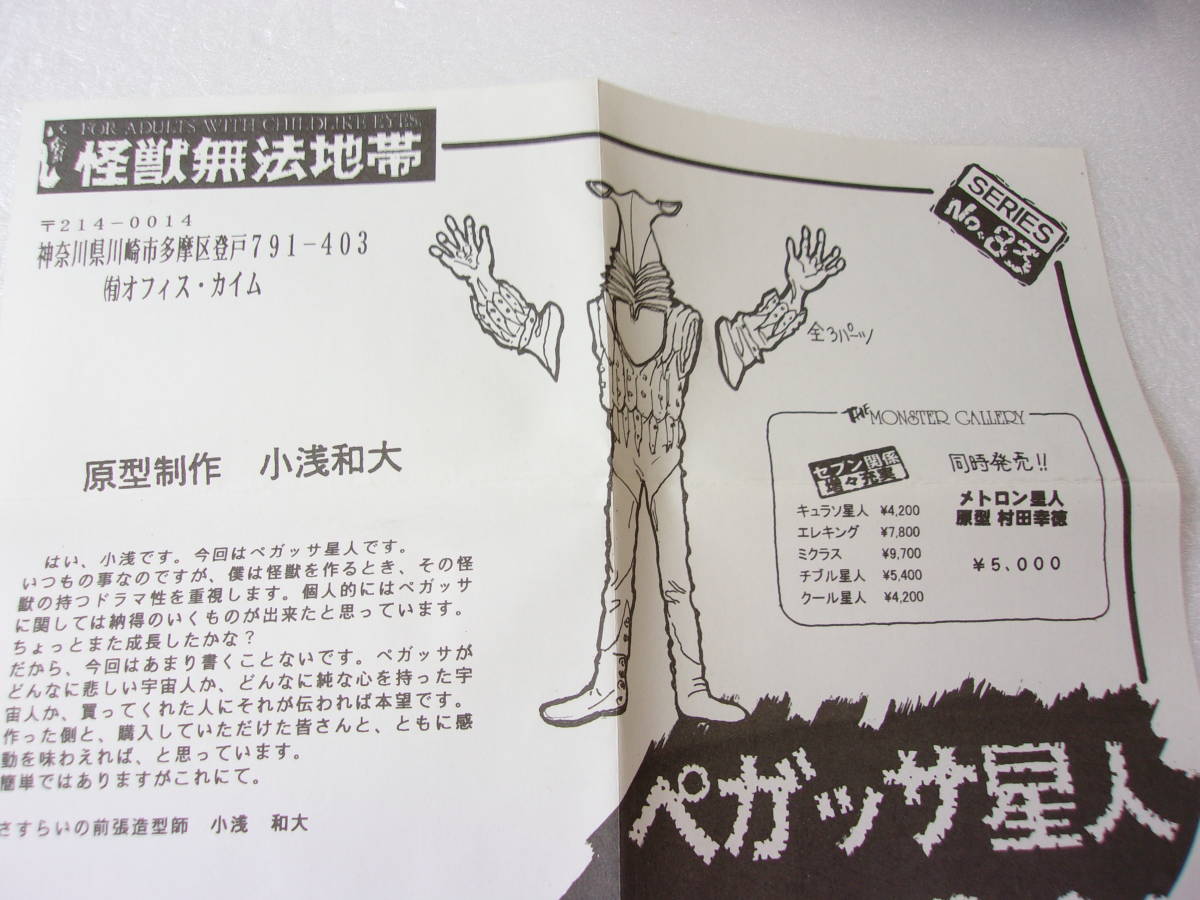 FOR ADULTS WITH CHILDLIKE EYES
怪獣無法地帯
〒214-0014
神奈川県川崎市多摩区登戸791-403
㈲オフィス・カイム
SERIES
No.83
全3パーツ
原型制作 小浅和大
はい、小浅です。今回はペガッサ星人です。
いつもの事なのですが、僕は怪獣を作るとき、その怪
獣の持つドラマ性を重視します。個人的にはペガッサ
に関しては納得のいくものが出来たと思っています。
ちょっとまた成長したかな?
だから、今回はあまり書くことないです。ペガッサが
どんなに悲しい宇宙人か、どんなに純な心を持った宇
宙人か、買ってくれた人にそれが伝われば本望です。
作った側と、購入していただけた皆さんと、ともに感
動を味わえれば、と思っています。
簡単ではありますがこれにて。
さすらいの前張造型師 小浅 和大
THE MONSTER GALLERY
セブン関係
増々充実
キュラソ星人 ¥4,200
エレキング ¥7,800
ミクラス ¥9,700
チブル星人 ¥5,400
クール星人 ¥4,200
同時発売!!
メトロン星人
原型 村田幸徳
¥5,000
ペガッサ星人